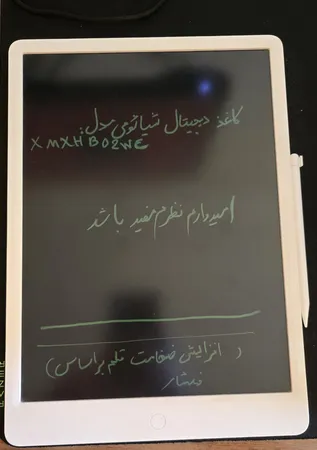 کاغذ دیجیتال شیائومی مدل:
XMXHB02WC
امیدوارم نظرم مفید باشد
(افزایش ضخامت قلم براساس
فشار)